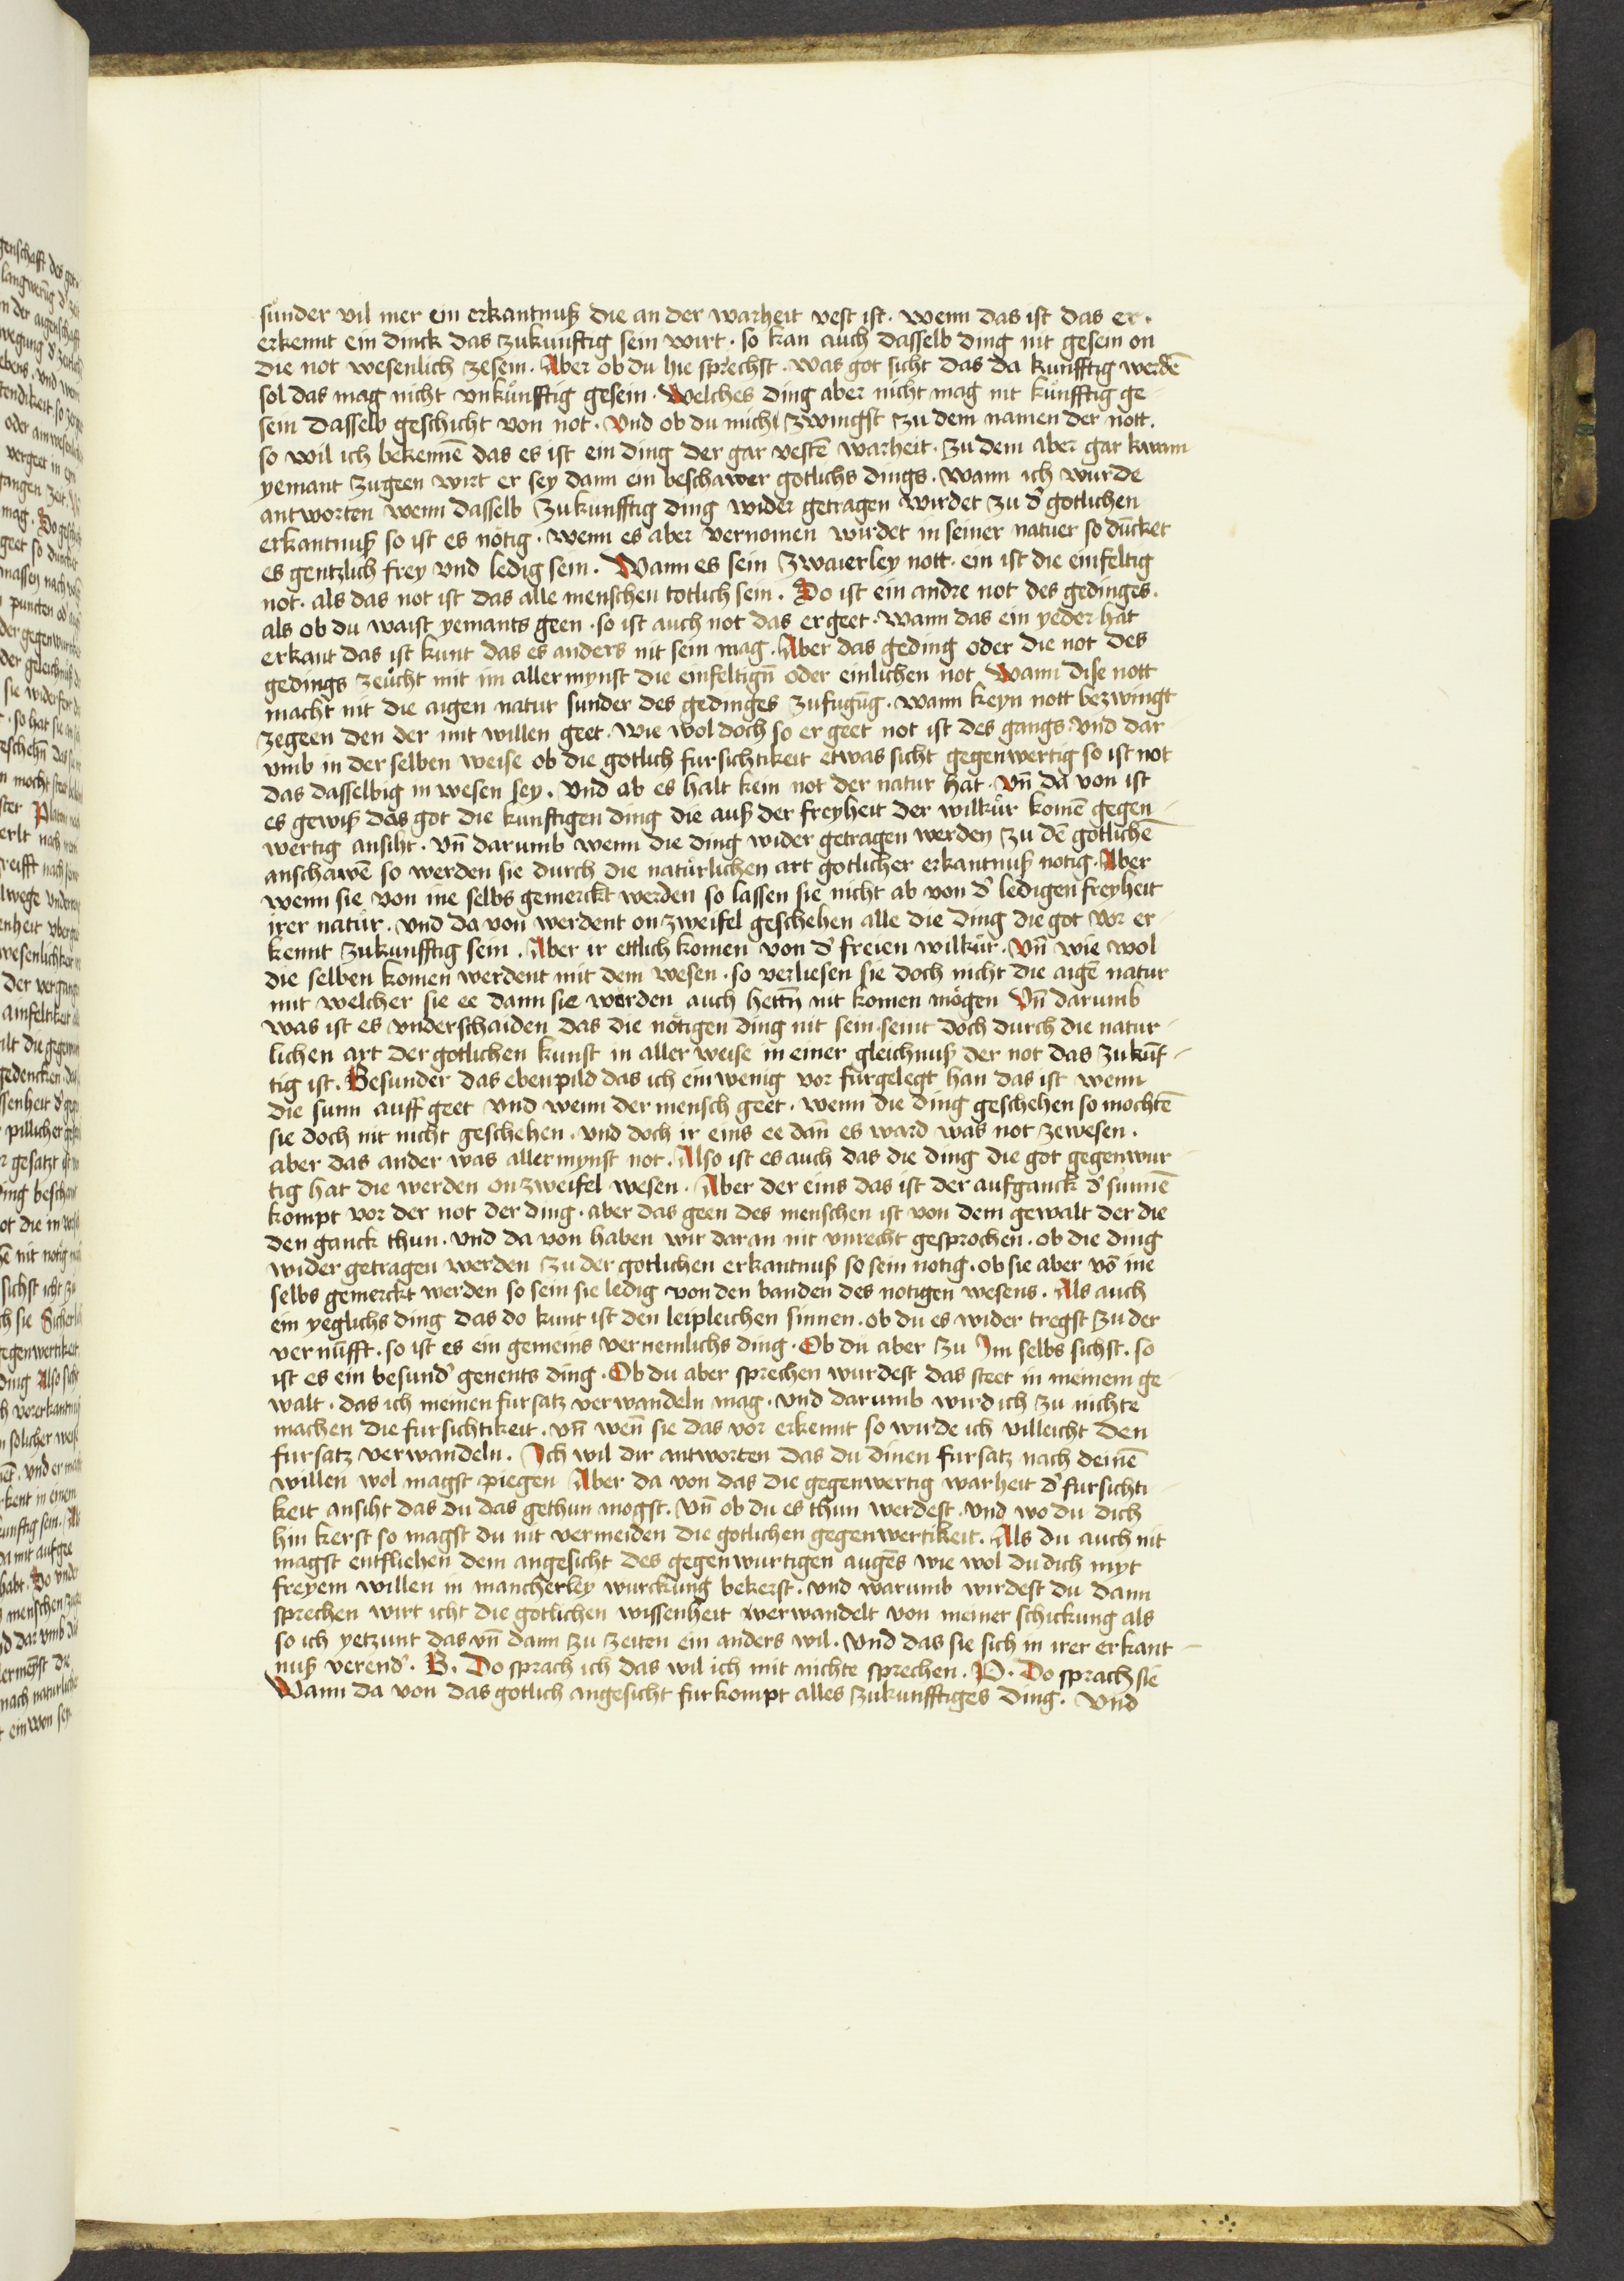 sunder vil mer ein erkantnuß die an der warheit vest ist. wenn das ist das er.
erkennt ein dinck das zukunftig sein wirt. so kan auch dasselb ding nit gesein on
die not wesenlich zesein. Aber ob du hie sprechst. was got sicht das da kunfftig werdē
sol das mag nicht vnkunfftig gesein. Welches ding aber nicht mag nit kunfftig ge
sein dasselb geschicht von not. Vnd ob du mich zwingst zu dem namen der nott.
so wil ich bekennē das es ist ein ding der gar vestē warheit. zu dem aber gar kawm
yemant zugeen wirt er sey dann ein beschawer gotlichs dings. wann ich wurde
antworten wenn dasselb zukunfftig ding wider getragen wirdet zu d' gotlichen
erkantnuß so ist es nötig. wenn es aber vernomen wirdet in seiner natuer so dūcket
es gentzlich frey vnd ledig sein. Wann es sein zwaierley nott. ein ist die einfeltig
not. als das not ist das alle menschen totlich sein. Do ist ein andre not des gedinges.
als ob du waist yemants geen. so ist auch not das er geet. wann das ein yeder hat
erkant das ist kunt das es anders nit sein mag. Aber das geding oder die not des
gedings zeucht mit im aller mynst die einfeltign̄ oder einlichen not Wann dise nott
macht nit die aigen natur sunder des gedinges zufugūg. wann keyn nott bezwingt
zegeen den der mit willen geet. wie wol doch so er geet not ist des gangs. vnd dar
vmb in der selben weise ob die gotlich fursichtikeit etwas sicht gegenwertig so ist not
das dasselbig in wesen sey. vnd ab es halt kein not der natur hat. Vn̄ da von ist
es gewiß das got die kunftigen ding die auß der freyheit der wilkür komē gegen
wertig ansiht. vn̄ darumb wenn die ding wider getragen werden zu dē gotlichē
anschawē so werden sie durch die natürlichen art gotlicher erkantnuß notig. Aber
wenn sie von ine selbs gemerckt werden so lassen sie nicht ab von d' ledigen freyheit
irer natur. vnd da von werdent on zweifel geschehen alle die ding die got vor er
kennt zukunfftig sein. Aber ir ettlich komen von d' freien wilkür. Vn̄ wie wol
die selben komen werdent mit dem wesen. so verliesen sie doch nicht die aigē natur
mit welcher sie ee dann sie wörden auch hettn̄ nit komen mögen Vn̄ darumb
was ist es vnderschaiden das die nötigen ding nit sein. seint doch durch die natur
lichen art der gotlichen kunst in aller weise in einer gleichnuß der not das zukūf
tig ist. Besunder das ebenpild das ich ein wenig vor furgelegt han das ist wenn
die sunn auff geet vnd wenn der mensch geet. wenn die ding geschehen so mochtē
sie doch nit nicht geschehen. vnd doch ir eins ee dan̄ es ward was not zewesen.
aber das ander was aller mynst not. Also ist es auch das die ding die got gegenwur
tig hat die werden on zweifel wesen. Aber der eins das ist der aufganck d' sunnē
kompt vor der not der ding. aber das geen des menschen ist von dem gewalt der die
den ganck thun. vnd da von haben wir daran nit vnrecht gesprochen. ob die ding
wider getragen werden zu der gotlichen erkantnuß so sein notig. ob sie aber vō ine
selbs gemerckt werden so sein sie ledig von den banden des notigen wesens. Als auch
ein yeglichs ding das do kunt ist den leipleichen sinnen. ob du es wider tregst zu der
vernufft. so ist es ein gemeins vernemlichs ding. Ob du aber zu Im selbs sichst. so
ist es ein besund' genents ding. Ob du aber sprechen wurdest das steet in meinem ge
walt. das ich meinen fursatz verwandeln mag. vnd darumb wird ich zu nichte
machen die fursichtikeit. vn̄ wen̄ sie das vor erkennt so wirde ich villeicht den
fursatz verwandeln. Ich wil dir antworten das du dinen fursatz nach deinē
willen wol magst piegen Aber da von das die gegenwertig warheit d' fursichti
keit ansiht das du das gethun mogst. Vn̄ ob du es thun werdest. vnd wo du dich
hin kerst so magst du nit vermeiden die gotlichen gegenwertikeit. Als du auch nit
magst entfliehen dem angesicht des gegenwurtigen augēs wie wol du dich myt
freyem willen in mancherley wurckung bekerst. vnd warumb wirdest du dann
sprechen wirt icht die gotlichen wissenheit verwandelt von meiner schickung als
so ich yetzunt das vn̄ dann zu zeiten ein anders wil. vnd das sie sich in irer erkant
nuß verend'. B. Do sprach ich das wil ich mit nichte sprechen. P. Do sprach sie
Wann da von das gotlich angesicht furkompt alles zukunfftiges ding. Vnd